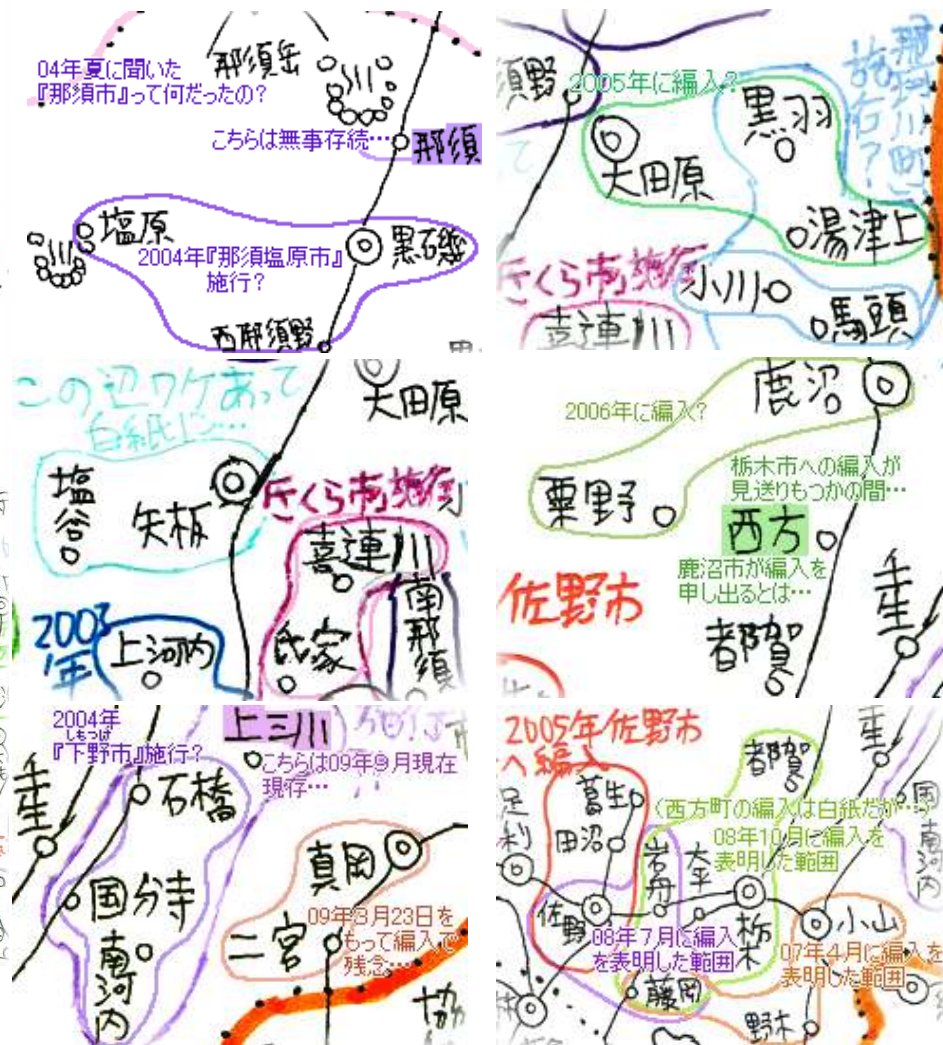 04年夏に聞いた
『那須市』って何だったの?
那須岳
こちらは無事存続…
那須
塩原
2004年『那須塩原市』
施行?
黒石磯
西那須野
須野
2005年に編入?
黒羽
大田原
湯津上
那珂川町
施行?
さくら市施行
小川
喜連川
馬頭
この辺ワケあって
白紙に…
大田原
塩谷
矢板
さくら市施行
喜連川
2003
年
上河内
氏家
南那須
鹿沼
2006年に編入?
粟野
栃木市への編入が
見送りもつかの間…
西方
鹿沼市が編入を
申し出るとは…
佐野市
都賀
壬生
2004年
しもつけ
『下野市』施行?
上三川
こちらは09年9月現在
現存…
石橋
壬生
国分寺
南河内
真岡
二宮
09年3月23日を
もって編入で
残念…
2005年佐野市
へ編入
都賀
壬生
葛生
(西方町の編入は白紙だが…)
足利
田沼
08年10月に編入を
表明した範囲
岩舟
大平
国
南河内
佐野
栃木
小山
08年7月に編入
を表明した範囲
07年4月に編入を
表明した範囲
藤岡
野木